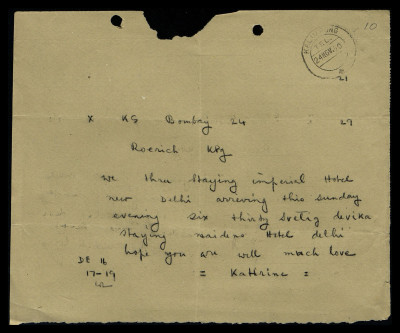 10
24 NOV
21
x KG Bombay 24 27
Roerich Kpg
we three staying imperial Hotel
new Delhi arreving this sunday
evening six thirty svetig devika
staying maidens Hotel delhi
hope you are well much love
DE 16
17-19
= Kathrine =